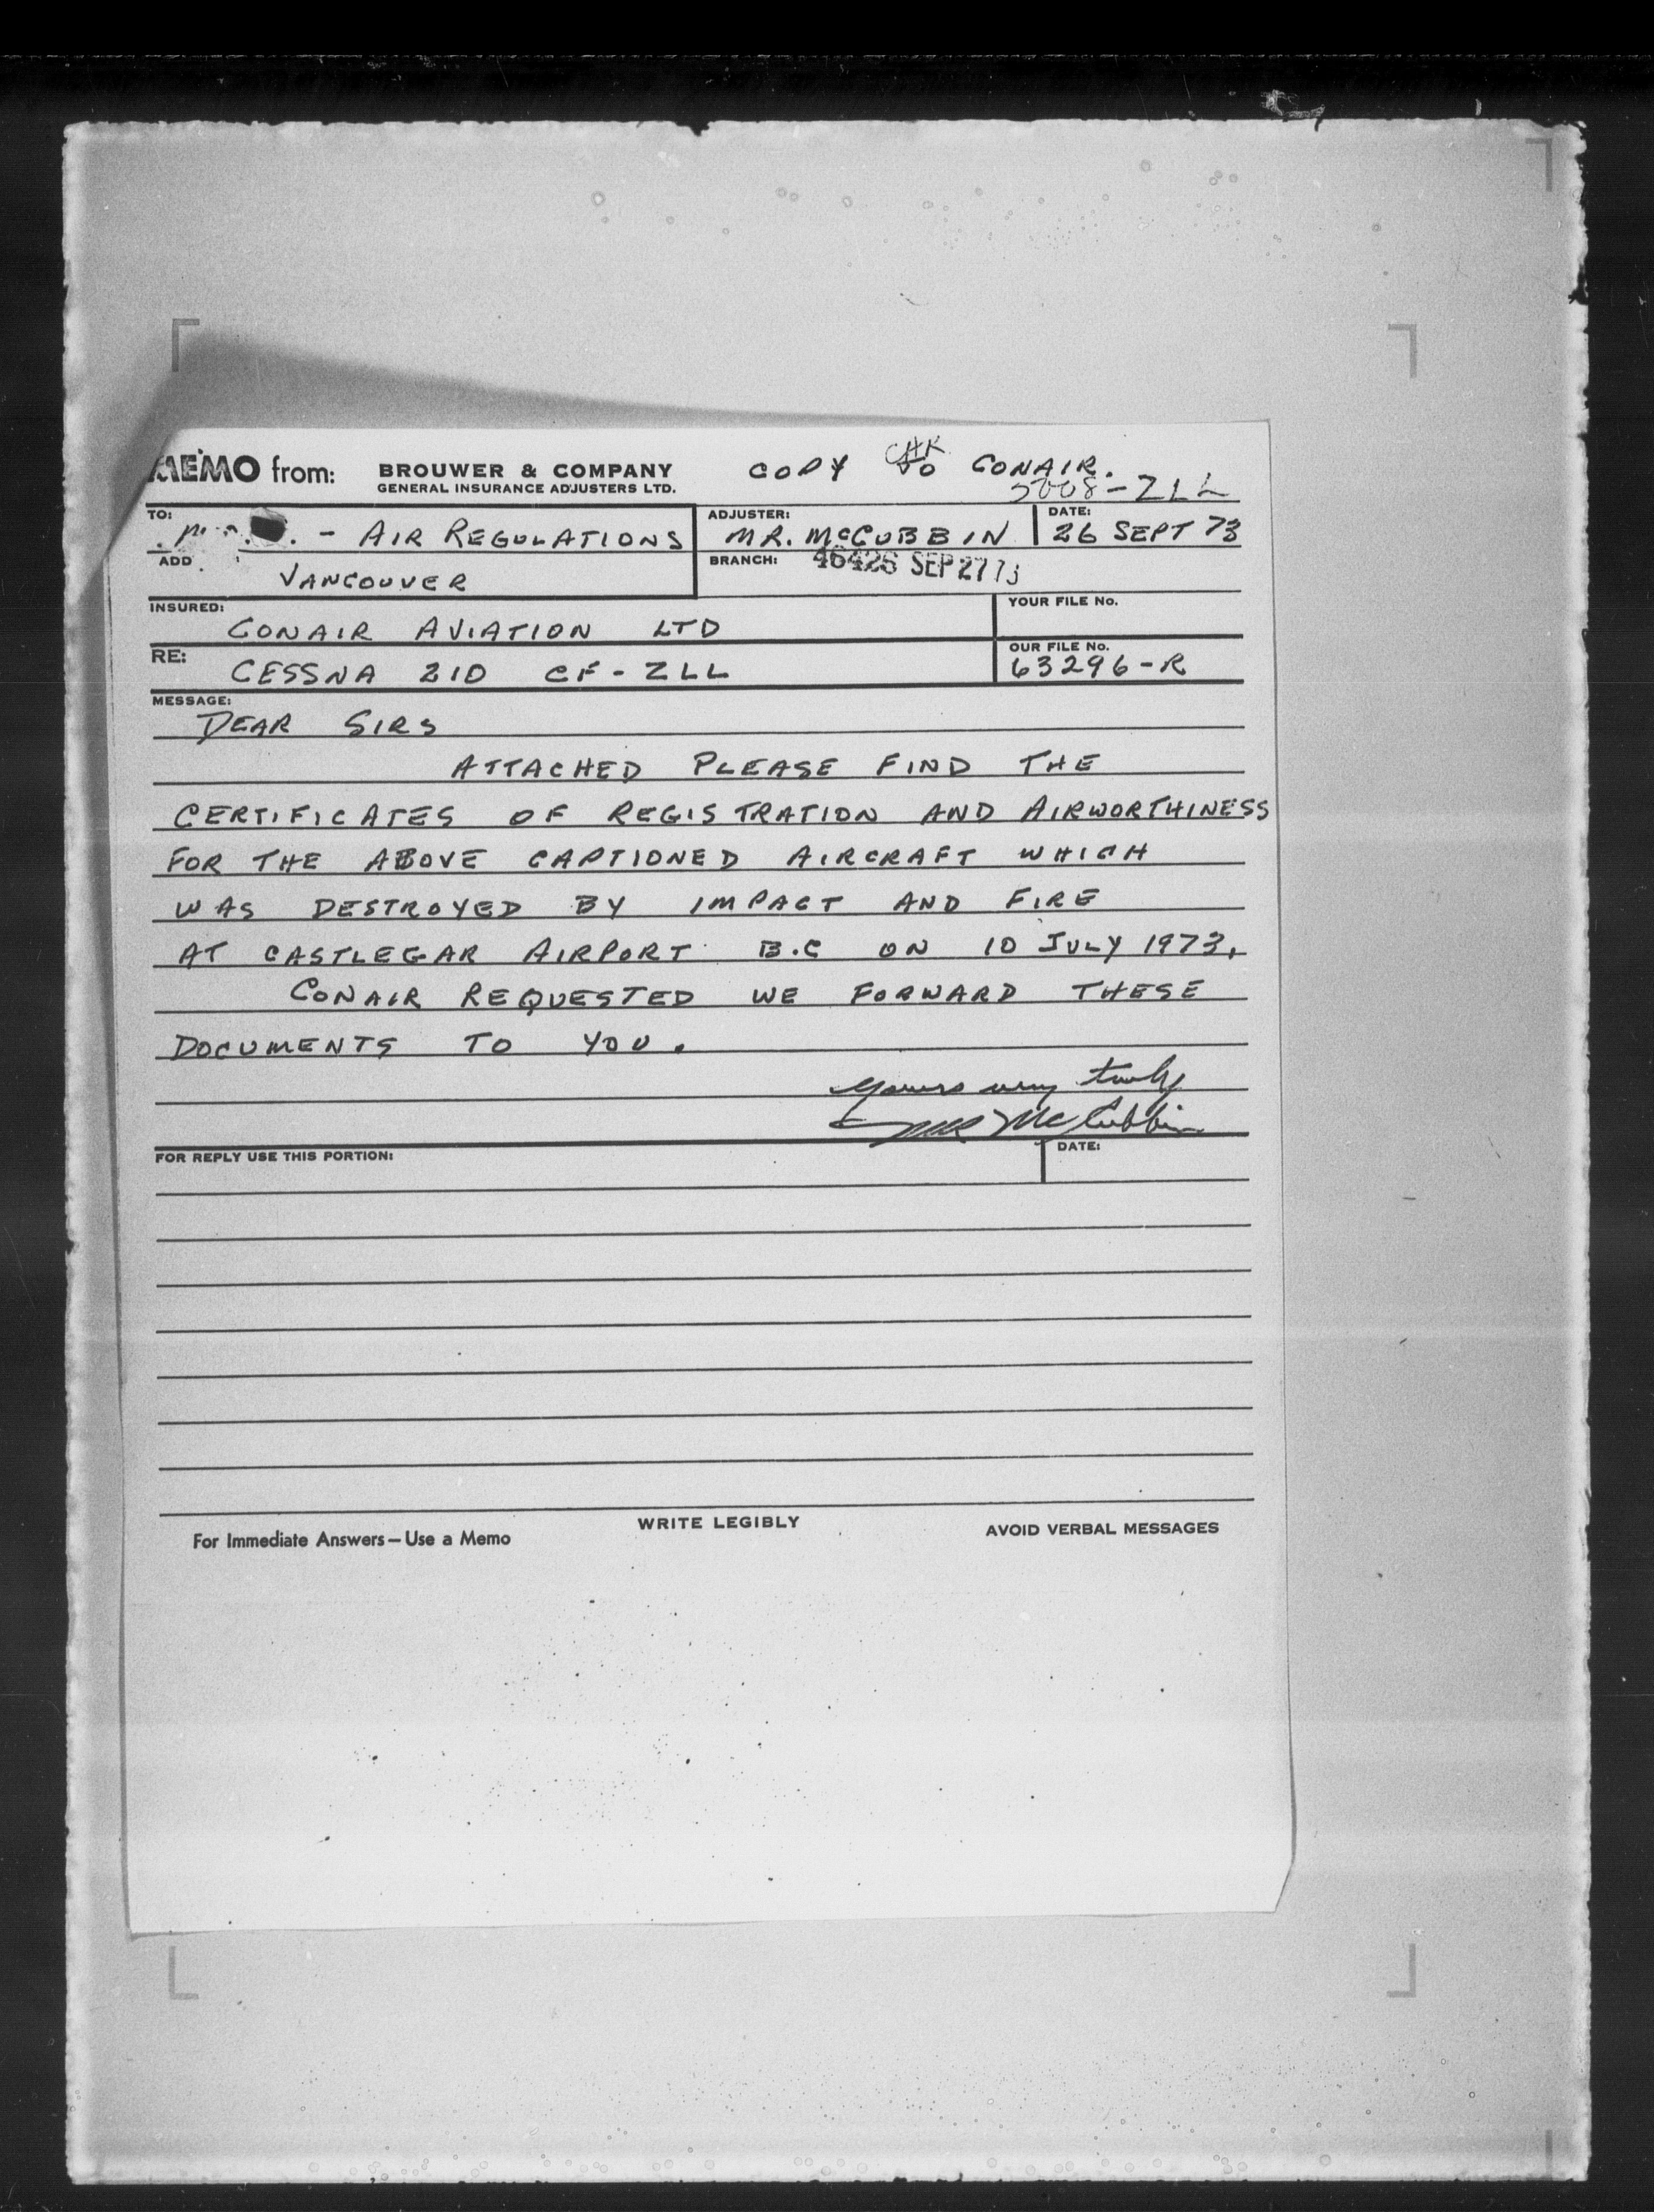 MEMO from: BROUWER & COMPANY COPY TO CONAIR.
CHK
GENERAL INSURANCE ADJUSTERS LTD.
5008-ZLL
TO: - AIR REGULATIONS ADJUSTER: MR. McCUBBIN DATE: 26 SEPT 73
ADD VANCOUVER BRANCH: 46426 SEP 27 73
INSURED: CONAIR AVIATION LTD YOUR FILE No.
RE: CESSNA 210 CF-ZLL OUR FILE No. 63296-R
MESSAGE:
DEAR SIRS
ATTACHED PLEASE FIND THE
CERTIFICATES OF REGISTRATION AND AIRWORTHINESS
FOR THE ABOVE CAPTIONED AIRCRAFT WHICH
WAS DESTROYED BY IMPACT AND FIRE
AT CASTLEGAR AIRPORT B.C ON 10 JULY 1973.
CONAIR REQUESTED WE FORWARD THESE
DOCUMENTS TO YOU.
Yours very truly
McCubbin
FOR REPLY USE THIS PORTION: DATE:
For Immediate Answers—Use a Memo WRITE LEGIBLY AVOID VERBAL MESSAGES